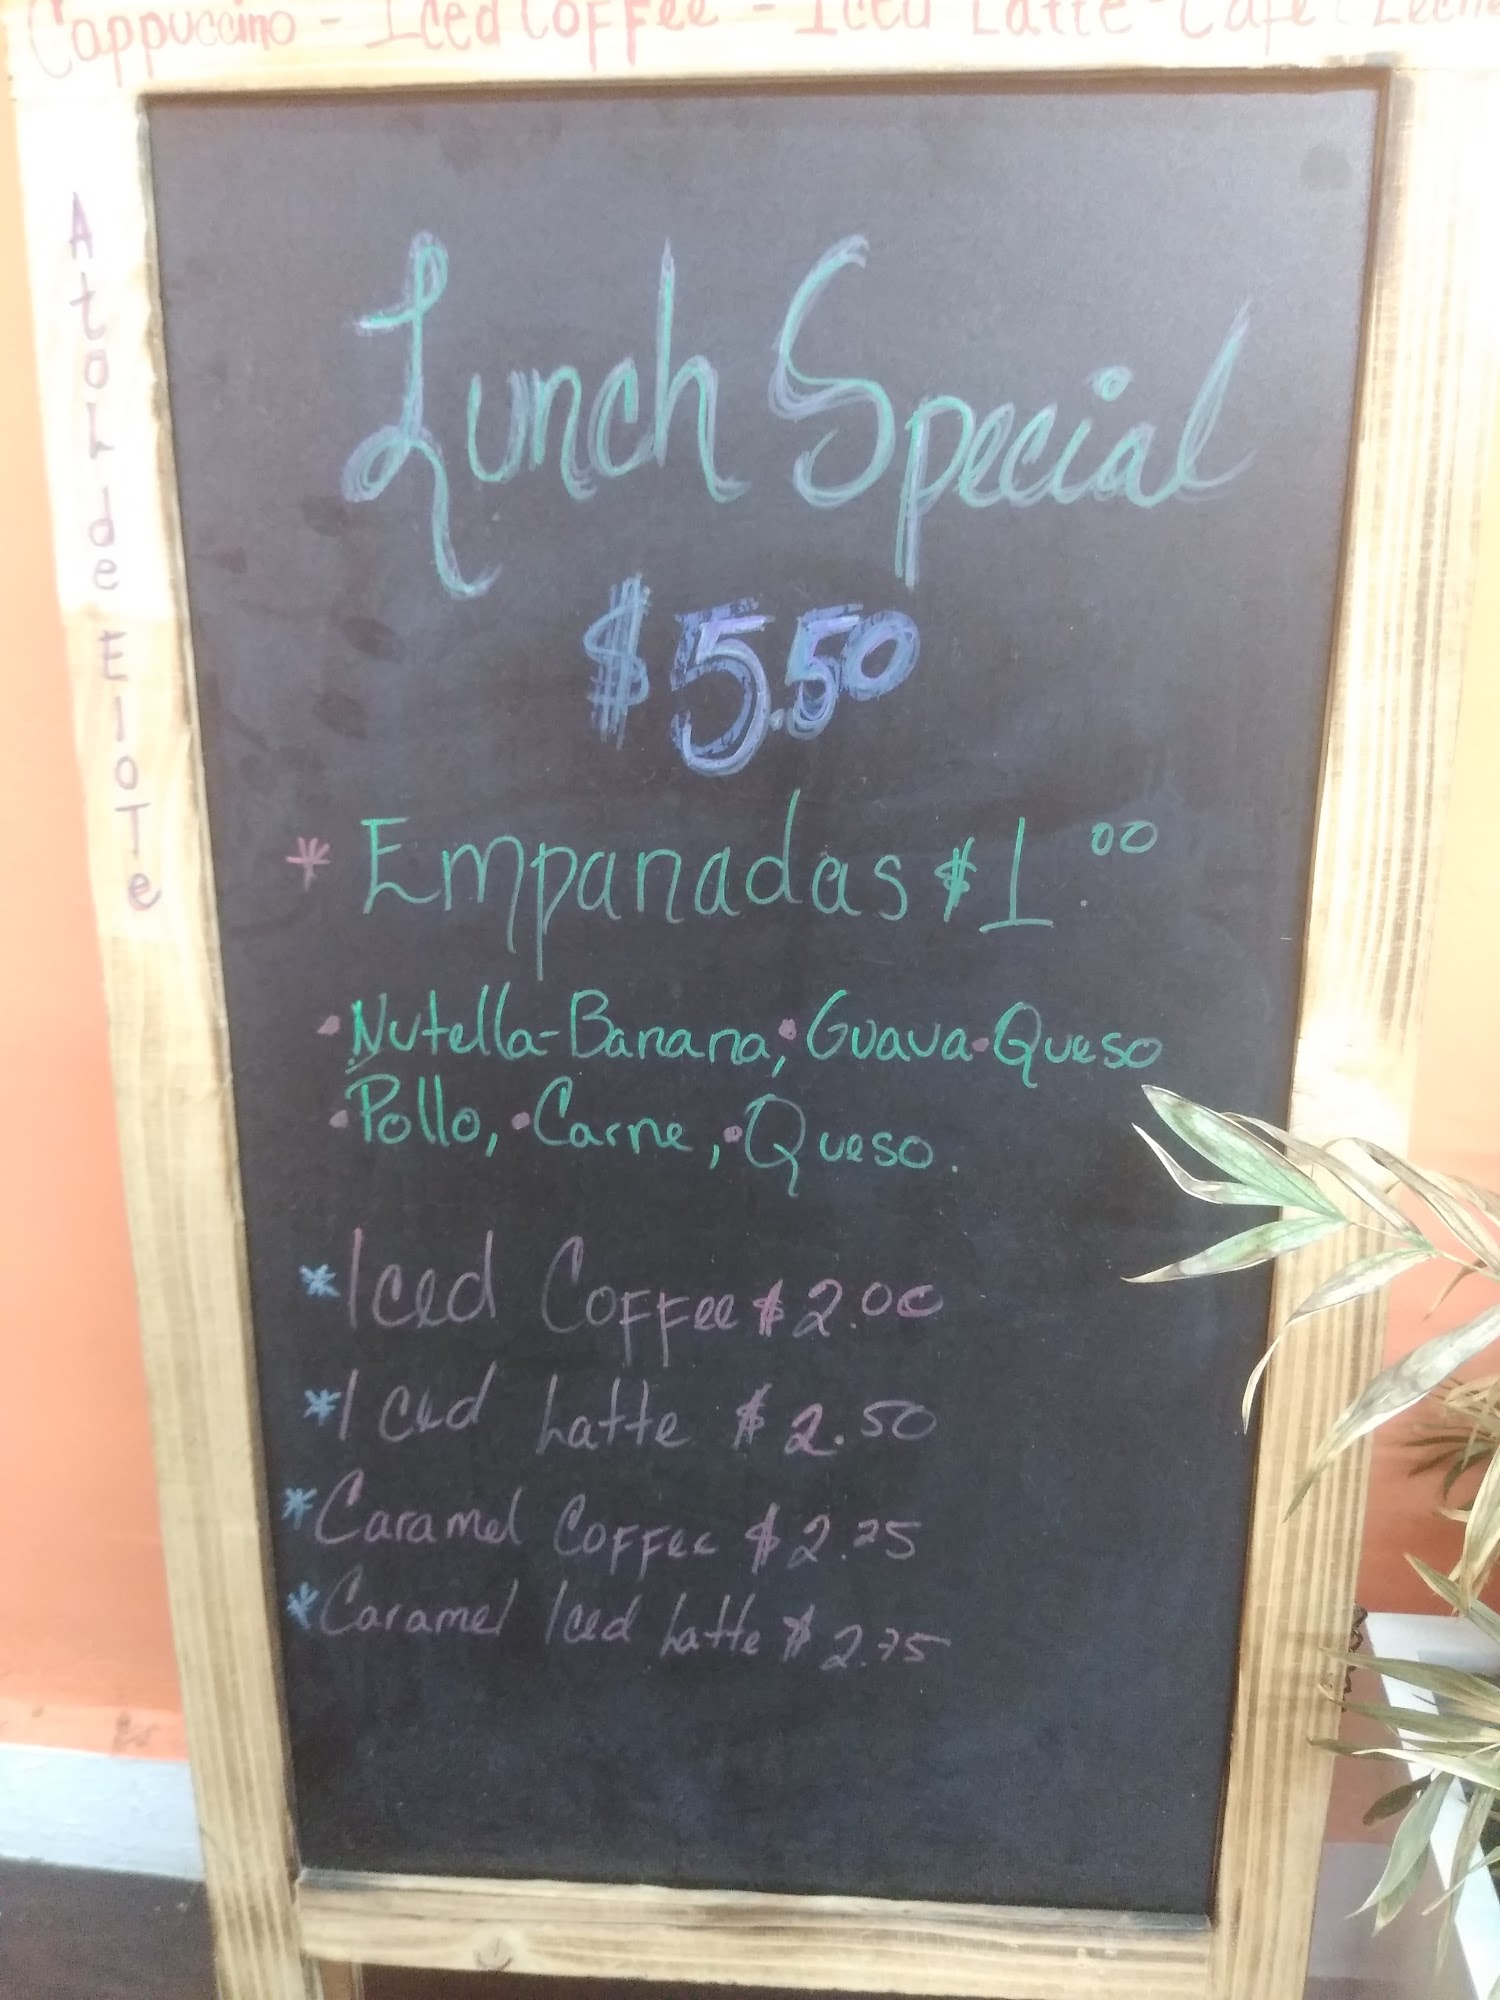 Cappuccino - Iced Coffee - Iced Latte - Cafe
Atol de Elote
Lunch Special
$5.50
* Empanadas $1.00
• Nutella-Banana, • Guava • Queso
• Pollo, • Carne, • Queso.
* Iced Coffee $2.00
* Iced Latte $2.50
* Caramel Coffee $2.25
* Caramel Iced Latte $2.75